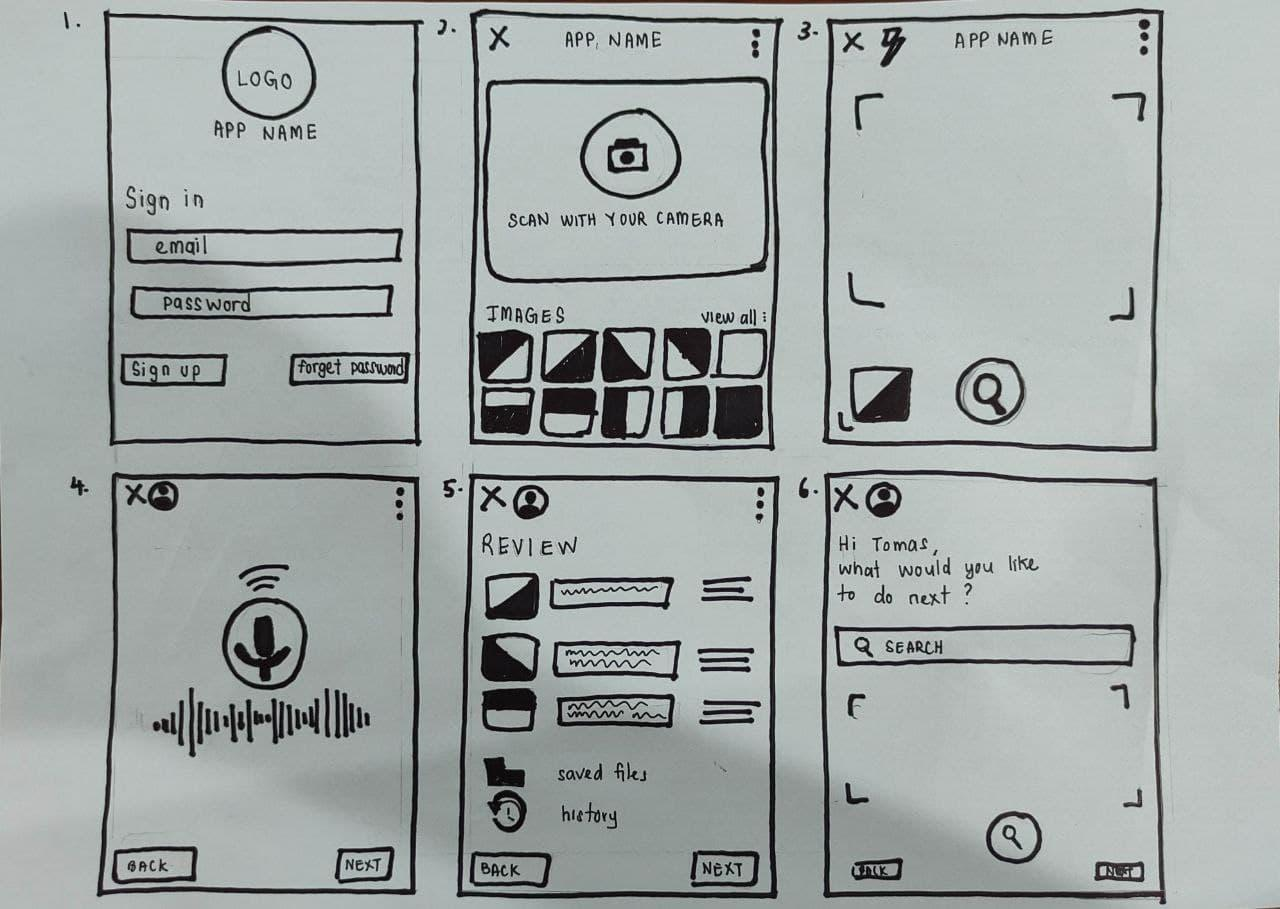 1.
LOGO
APP NAME
Sign in
email
password
Sign up
forget password
2.
APP NAME
SCAN WITH YOUR CAMERA
IMAGES
view all :
3.
APP NAME
4.
BACK
NEXT
5.
REVIEW
saved files
history
BACK
NEXT
6.
Hi Tomas,
what would you like
to do next ?
SEARCH
BACK
NEXT